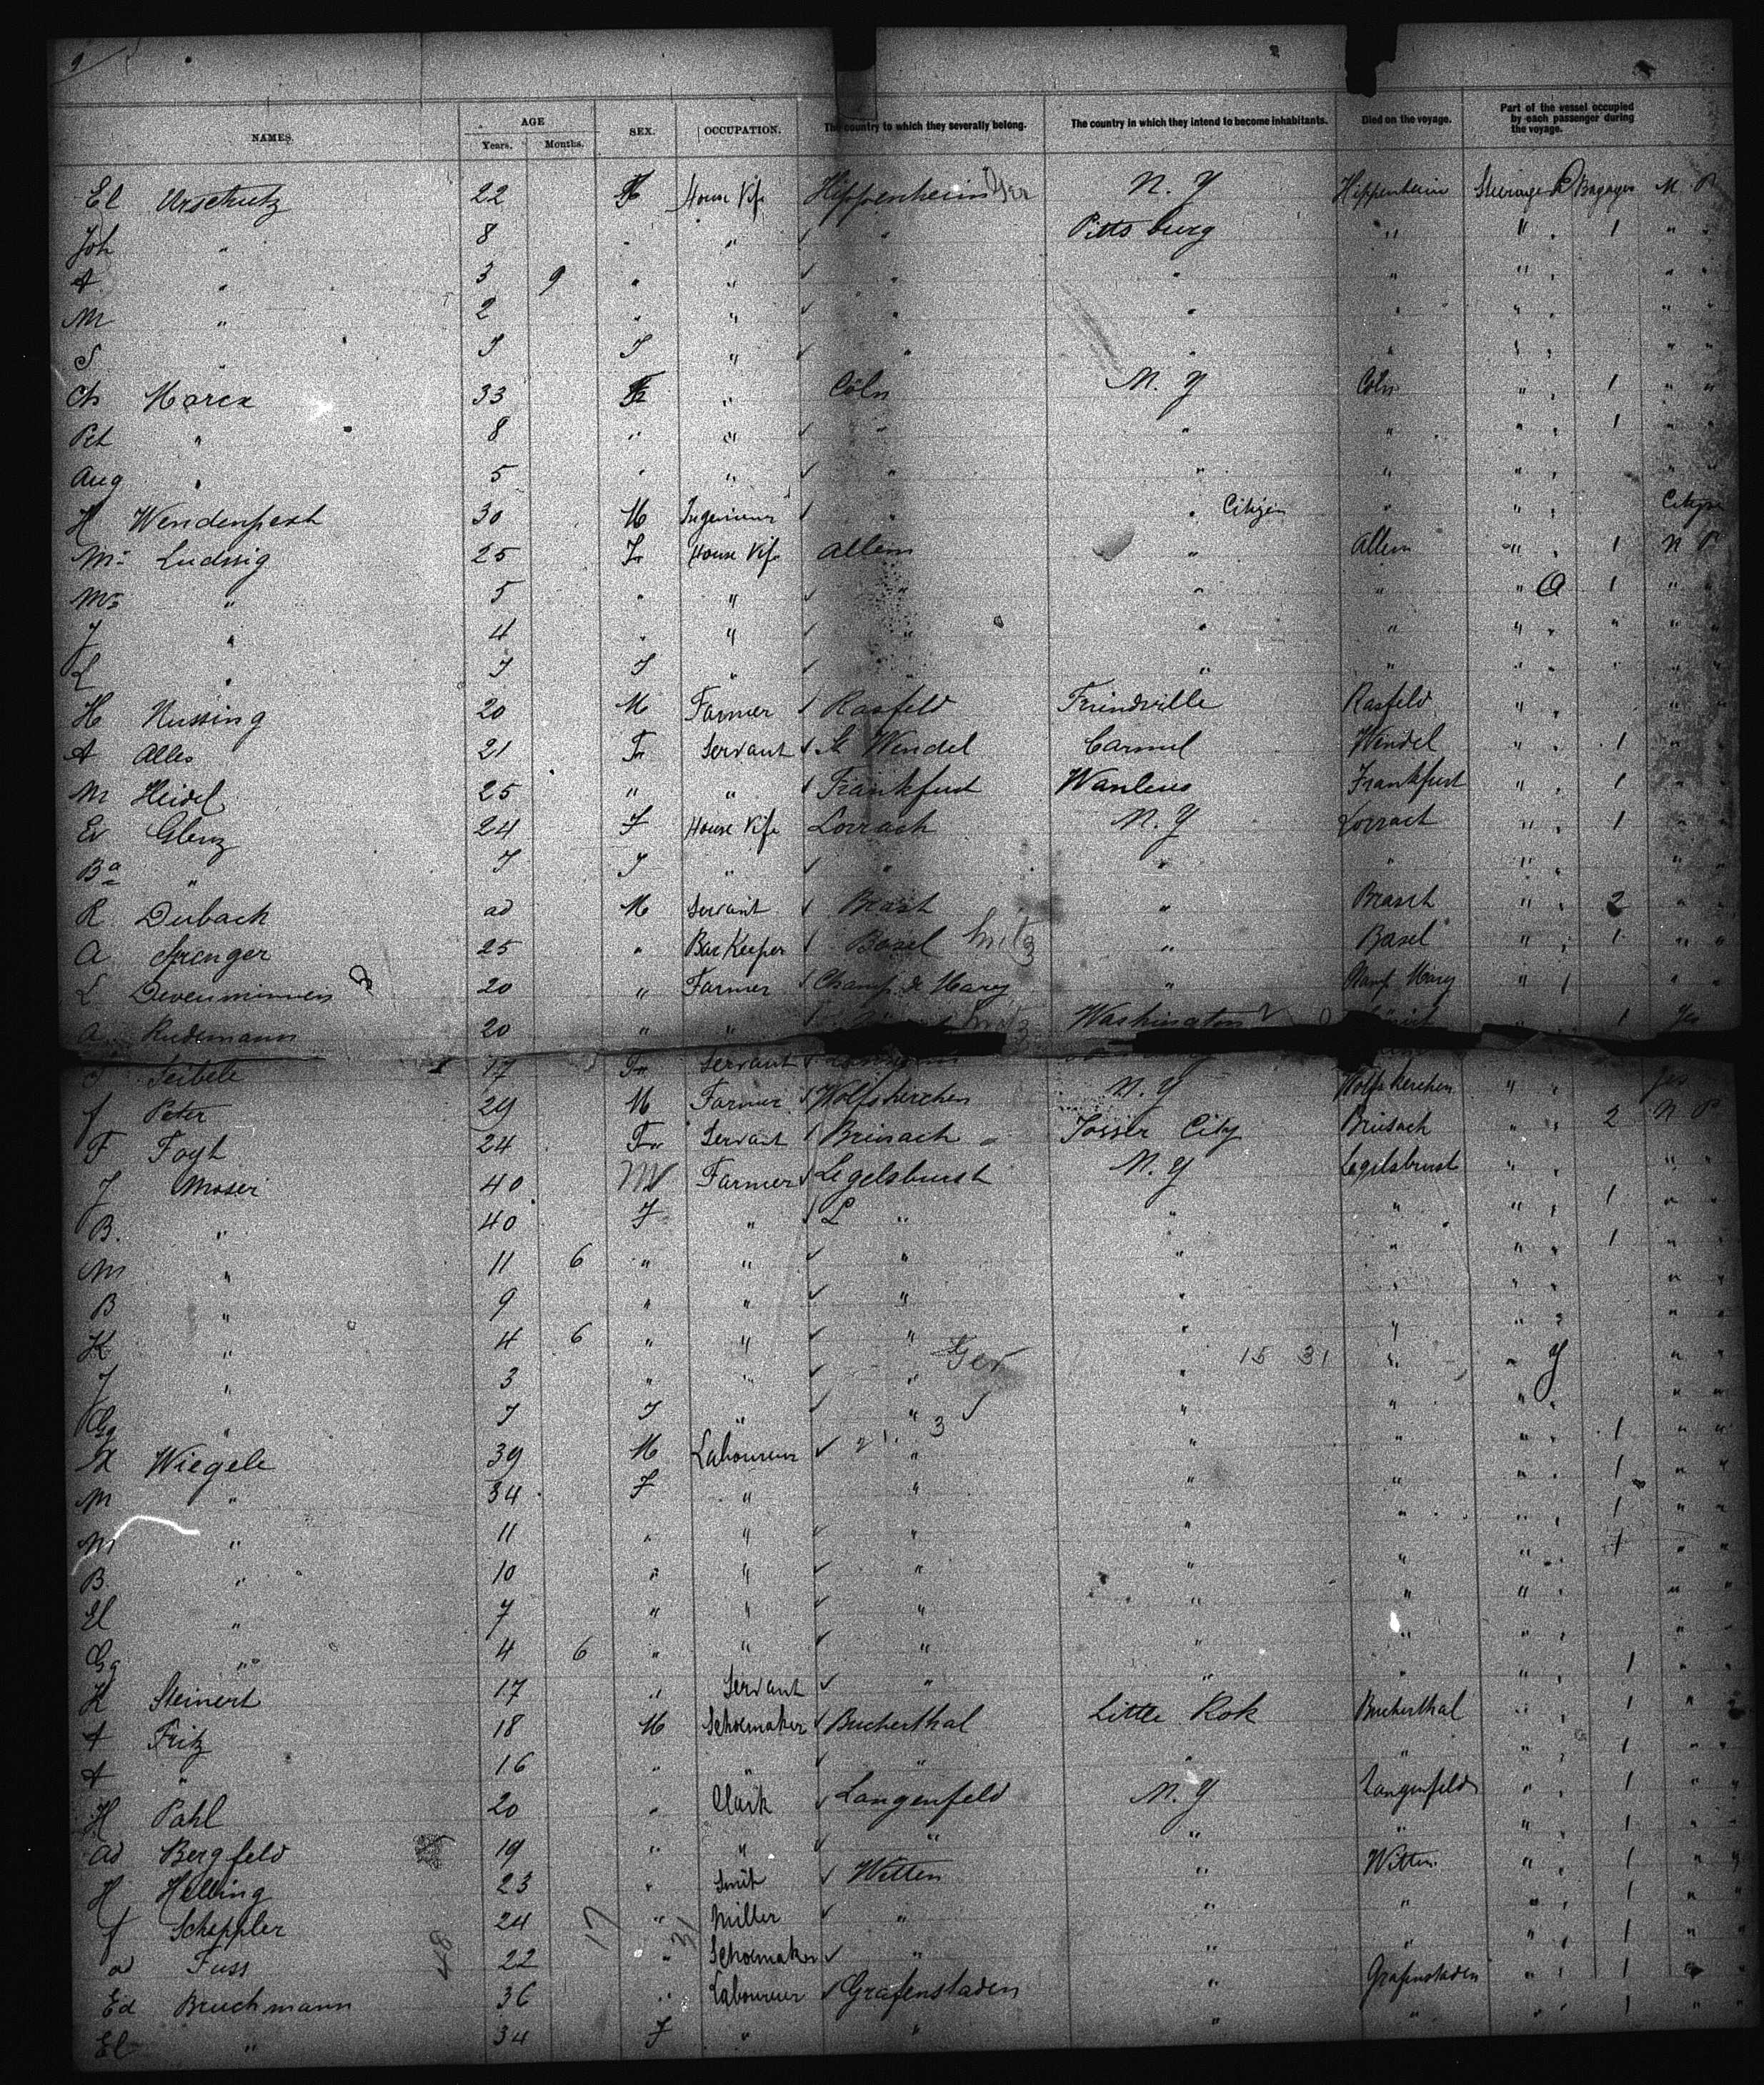 9
NAMES. AGE Years. Months. SEX. OCCUPATION. The country to which they severally belong. The country in which they intend to become inhabitants. Died on the voyage. Part of the vessel occupied by each passenger during the voyage.
El Urschutz 22 F House Vife Heppenheim Ger N. Y Heppenheim Steerage Bagages
Joh " 8 " " " Pittsburg " " 1 " "
A " 3 9 " " " " " " " "
M " 2 " " " " " " " "
S J J " " " " " " "
Ch Marex 33 F " Cöln N. Y Cöln " 1 " "
Pet " 8 " " " " " " 1 " "
Aug " 5 " " " " " " " "
H Wendenpest 30 M Ingenieur " " Citizen " "
M Ludwig 25 F House Vife Allem " Allem " 1 N P
" 5 " " " " " " 1 " "
J " 4 " " " " " " " " "
L " J J " " " " " " "
H Nussing 20 M Farmer Rasfeld Friendville Rasfeld " " "
A Alles 21 F Servant St Wendel Carmel Wendel " 1 " "
M Heidel 25 " " Frankfurt Frankfurt " 1 " "
Ev Glenz 24 F House Vife Lorrach N. Y Lorrach " 1 " "
Ba " J J " " " " " " "
R Durbach ad M Servant " " 2 " "
A Sprenger 25 " Bar Keeper Basel Switz " Basel " 1 " "
L 20 " Farmer " " " "
A Rudemann 20 " " Switz Washington " 1 Yes
Seibele 17 F Servant
J Peter 29 M Farmer Wolfskirchen N. Y Wolfskirchen " Yes
F Fogt 24 F Servant Breisach Jersser City Breisach " 2 N P
J Moser 40 M Farmer Legelshurst N. Y Legelshurst " " "
B. " 40 F " L " " " " 1 " "
M " 11 6 " " " " " " 1 " "
B " 9 " " " " " " " "
K " 4 6 " " " " " " " "
J " 3 " " " Ger " 15 31 " " " "
Gg " J J " " 3 " " " " "
X Wiegele 39 M Laboureur " " " " 1 " "
M " 34 F " " " " " 1 " "
M " 11 " " " " " " 1 " "
B. " 10 " " " " " " 1 " "
El " 7 " " " " " " " "
Gg " 4 6 " " " " " " " "
K Steinert 17 " Servant " " " " 1 " "
A Fritz 18 M Schoemaker Bucherthal Little Rok Bucherthal " 1 " "
A " 16 " " " " " " 1 " "
H Pahl 20 " Clark Langenfeld N. Y Langenfeld " 1 " "
Ad Bergfeld 19 " " " " " " 1 " "
H Helling 23 " Smit Witten " Witten " 1 " "
J Scheppler 24 17 " 31 Miller " " " " 1 " "
Fuss 48 22 " Schoemaker " " " " 1 " "
Ed Bruchmann 36 " Laboureur Grafenstaden " Grafenstaden " 1 " "
El " 34 F " " " " " 1 " "